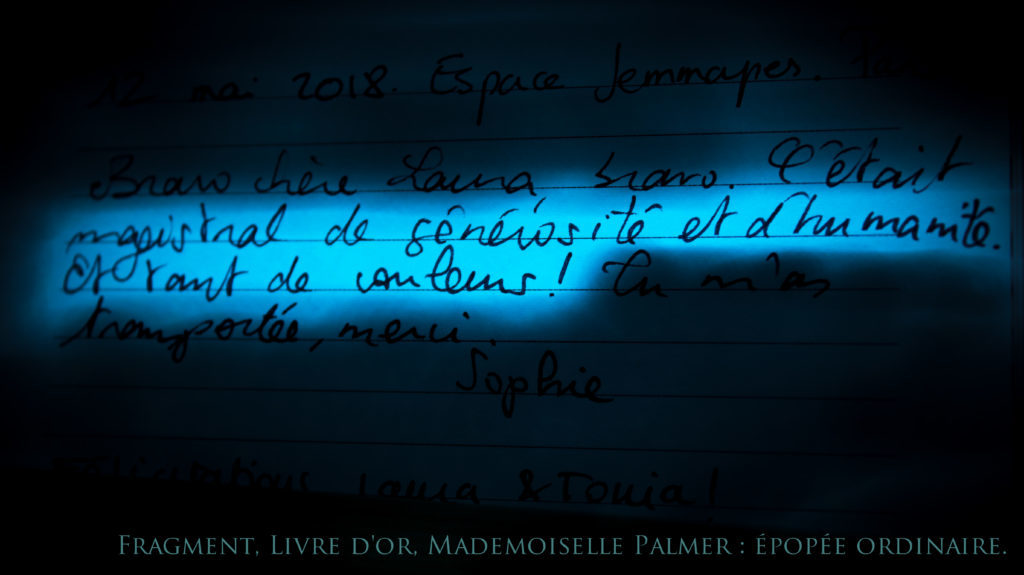 12 mai 2018. Espace Jemmapes.
Bravo chère Laura, bravo. C'était
magistral de générosité et d'humanité.
Et tant de couleurs! Tu m'as
transportée, merci.
Sophie
Félicitations Laura & Tonia!
FRAGMENT, LIVRE D'OR, MADEMOISELLE PALMER : ÉPOPÉE ORDINAIRE.